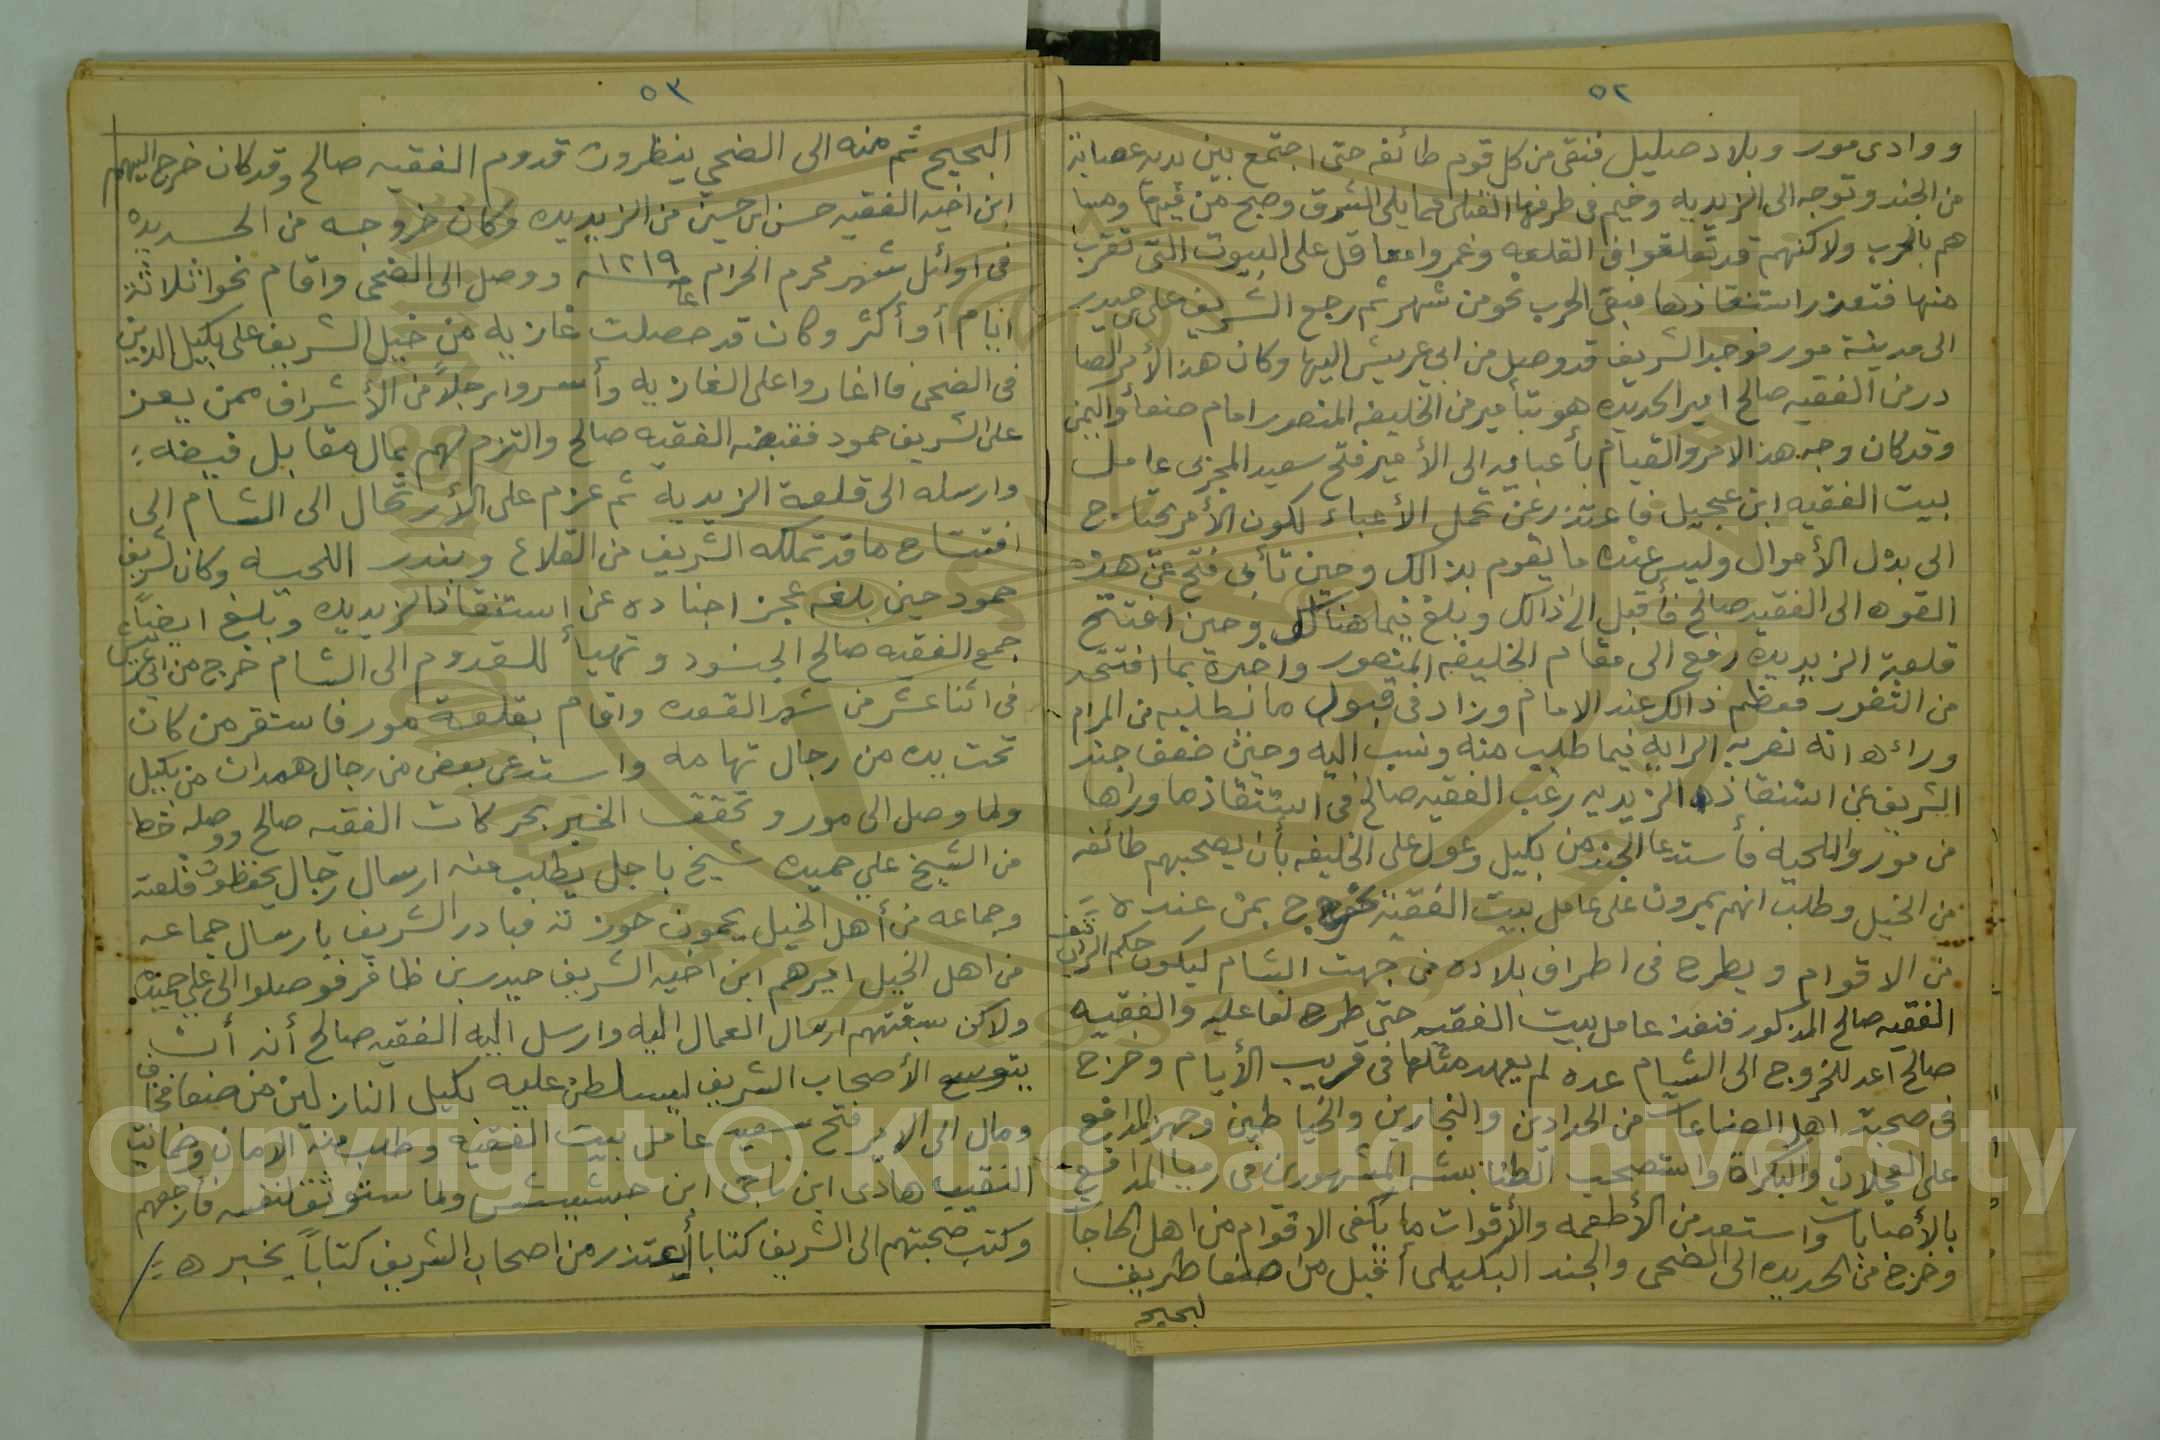 ٥٢
ووادى مور وبلاد صليل فنقى من كل قوم طائفه حتى اجتمع بين يديه عصابة
من الجند وتوجه الى الزيديه وخيم فى طرفها القبلى مما يلى الشرق وصبح من فيها وهبا
هم بالحرب ولاكنهم قد تعلقوا فى القلعه وعمروا معاقل على البيوت التى تقرب
منها فتعذر استنقاذها فبقى الحرب نحو من شهر ثم رجع الشريف على بن حيدر
الى مدينة مور فوجد الشريف قد وصل من ابى عريش اليها وكان هذا الأمر الصا
در من الفقيه صالح امير الحديده هو بتأمير من الخليفه المنصور امام صنعأ واليمن
وقد كان وجه هذا الامر والقيام بأعبايه الى الأمير فتح سعيد المجزبى عامل
بيت الفقيه ابن عجيل فاعتذر عن تحمل الأعباء لكون الأمر يحتاج
الى بذل الأموال وليس عنده ما يقوم بذالك وحين تأبى فتح عن هذه
القوه الى الفقيه صالح فأقبل الى ذالك وبلغ فيما هنالك وحين افتتح
قلعة الزيديه رفع الى مقام الخليفه المنصور واخبره بما افتتحه
من الثغور فعظم ذالك عند الامام وزاد فى قبول ما نطلبه من المرام
وراءه انه نصر به الرايه فيما طلب منه ونسب اليه وحين ضعف جند
الشريف عن استنقاذه الزيديه رغب الفقيه صالح فى استنقاذ ما وراها
من مور واللحيه فأستدعا الجند من بكيل وعول على الخليفه بأن يصحبهم طائفه
من الخيل وطلب انهم يمرون على عامل بيت الفقيه بمن عنده
من الاقوام ويطرح فى اطراف بلاده من جهت الشام ليكون حكم الرديف
الفقيه صالح المذكور فنفذ عامل بيت الفقيه حتى طرح لعا عليه والفقيه
صالح اعد للخروج الى الشام عده لم يعهد مثلها فى قريب الأيام وخرج
فى صحبته اهل الصناعات من الحدادين والنجارين والخياطين وجهز المدافع
على العجلان والبكراة واستصحب الطنابشه المشهورين فى رميا المدافع
بالأصابات واستعد من الأطعمه والأقوات ما يكفى الاقوام من اهل الحاجا
وخرج من الحديده الى الضحى والجند البكيلى أقبل من صنعا طريف
لبجيح
٥٣
البجيح ثم منه الى الضحي ينظرون قدوم الفقيه صالح وقد كان خرج اليهم
ابن اخيه الفقيه حسن بن حسين من الزيديه وكان خروجه من الحديده
فى اوائل شهر محرم الحرام عام ١٢١٩ ووصل الى الضحى واقام نحو اثلاثة
ايام أو أكثر وكان قد حصلت غازيه من خيل الشريف على بكيل الذين
فى الضحى فاغاروا على الغازيه وأسروا رجلاً من الأشراف ممن يعز
على الشريف حمود فقبضه الفقيه صالح والتزم لهم بمال مقابل قبضه
وارسله الى قلعة الزيدية ثم عزم على الأرتحال الى الشام الى
افتتاح ما قد تملكه الشريف من القلاع وبندر اللحيه وكان شريف
حمود حين بلغه عجز اجناده عن استنقاذ الزيديه وبلغ ايضاً
جمع الفقيه صالح الجنود وتهيأ للقدوم الى الشام خرج من ابى عريش
فى اثنا عشر من شهر القعده واقام بقلعة مور فاستقر من كان
تحت يده من رجال تهامه واستدعى بعض من رجال همدان من بكيل
ولما وصل الى مور وتحقق الخبر بحركات الفقيه صالح ووصله خط
من الشيخ علي حميده شيخ باجل يطلب منه ارسال رجال يحفظون قلعته
وجماعه من أهل الخيل يحمون حوزته فبادر الشريف بارسال جماعه
من اهل الخيل اميرهم ابن اخيه الشريف حيدر بن ظافر فوصلوا الى علي حميده
ولاكن سبقتهم ارسال العمال اليه وارسل اليه الفقيه صالح أنه أن
الأصحاب الشريف ليسلطن عليه بكيل النازلين من صنعا فخاف
ومال الى الامير فتح سعيد عامل بيت الفقيه وطلب منه الامان وضمانة
النقيب هادى ابن ناجى ابن ولما ستوثق لنفسه فأرجعهم
وكتب صحبتهم الى الشريف كتابا أيعتذر من اصحاب الشريف كتاباً يخبره
Copyright © King Saud University